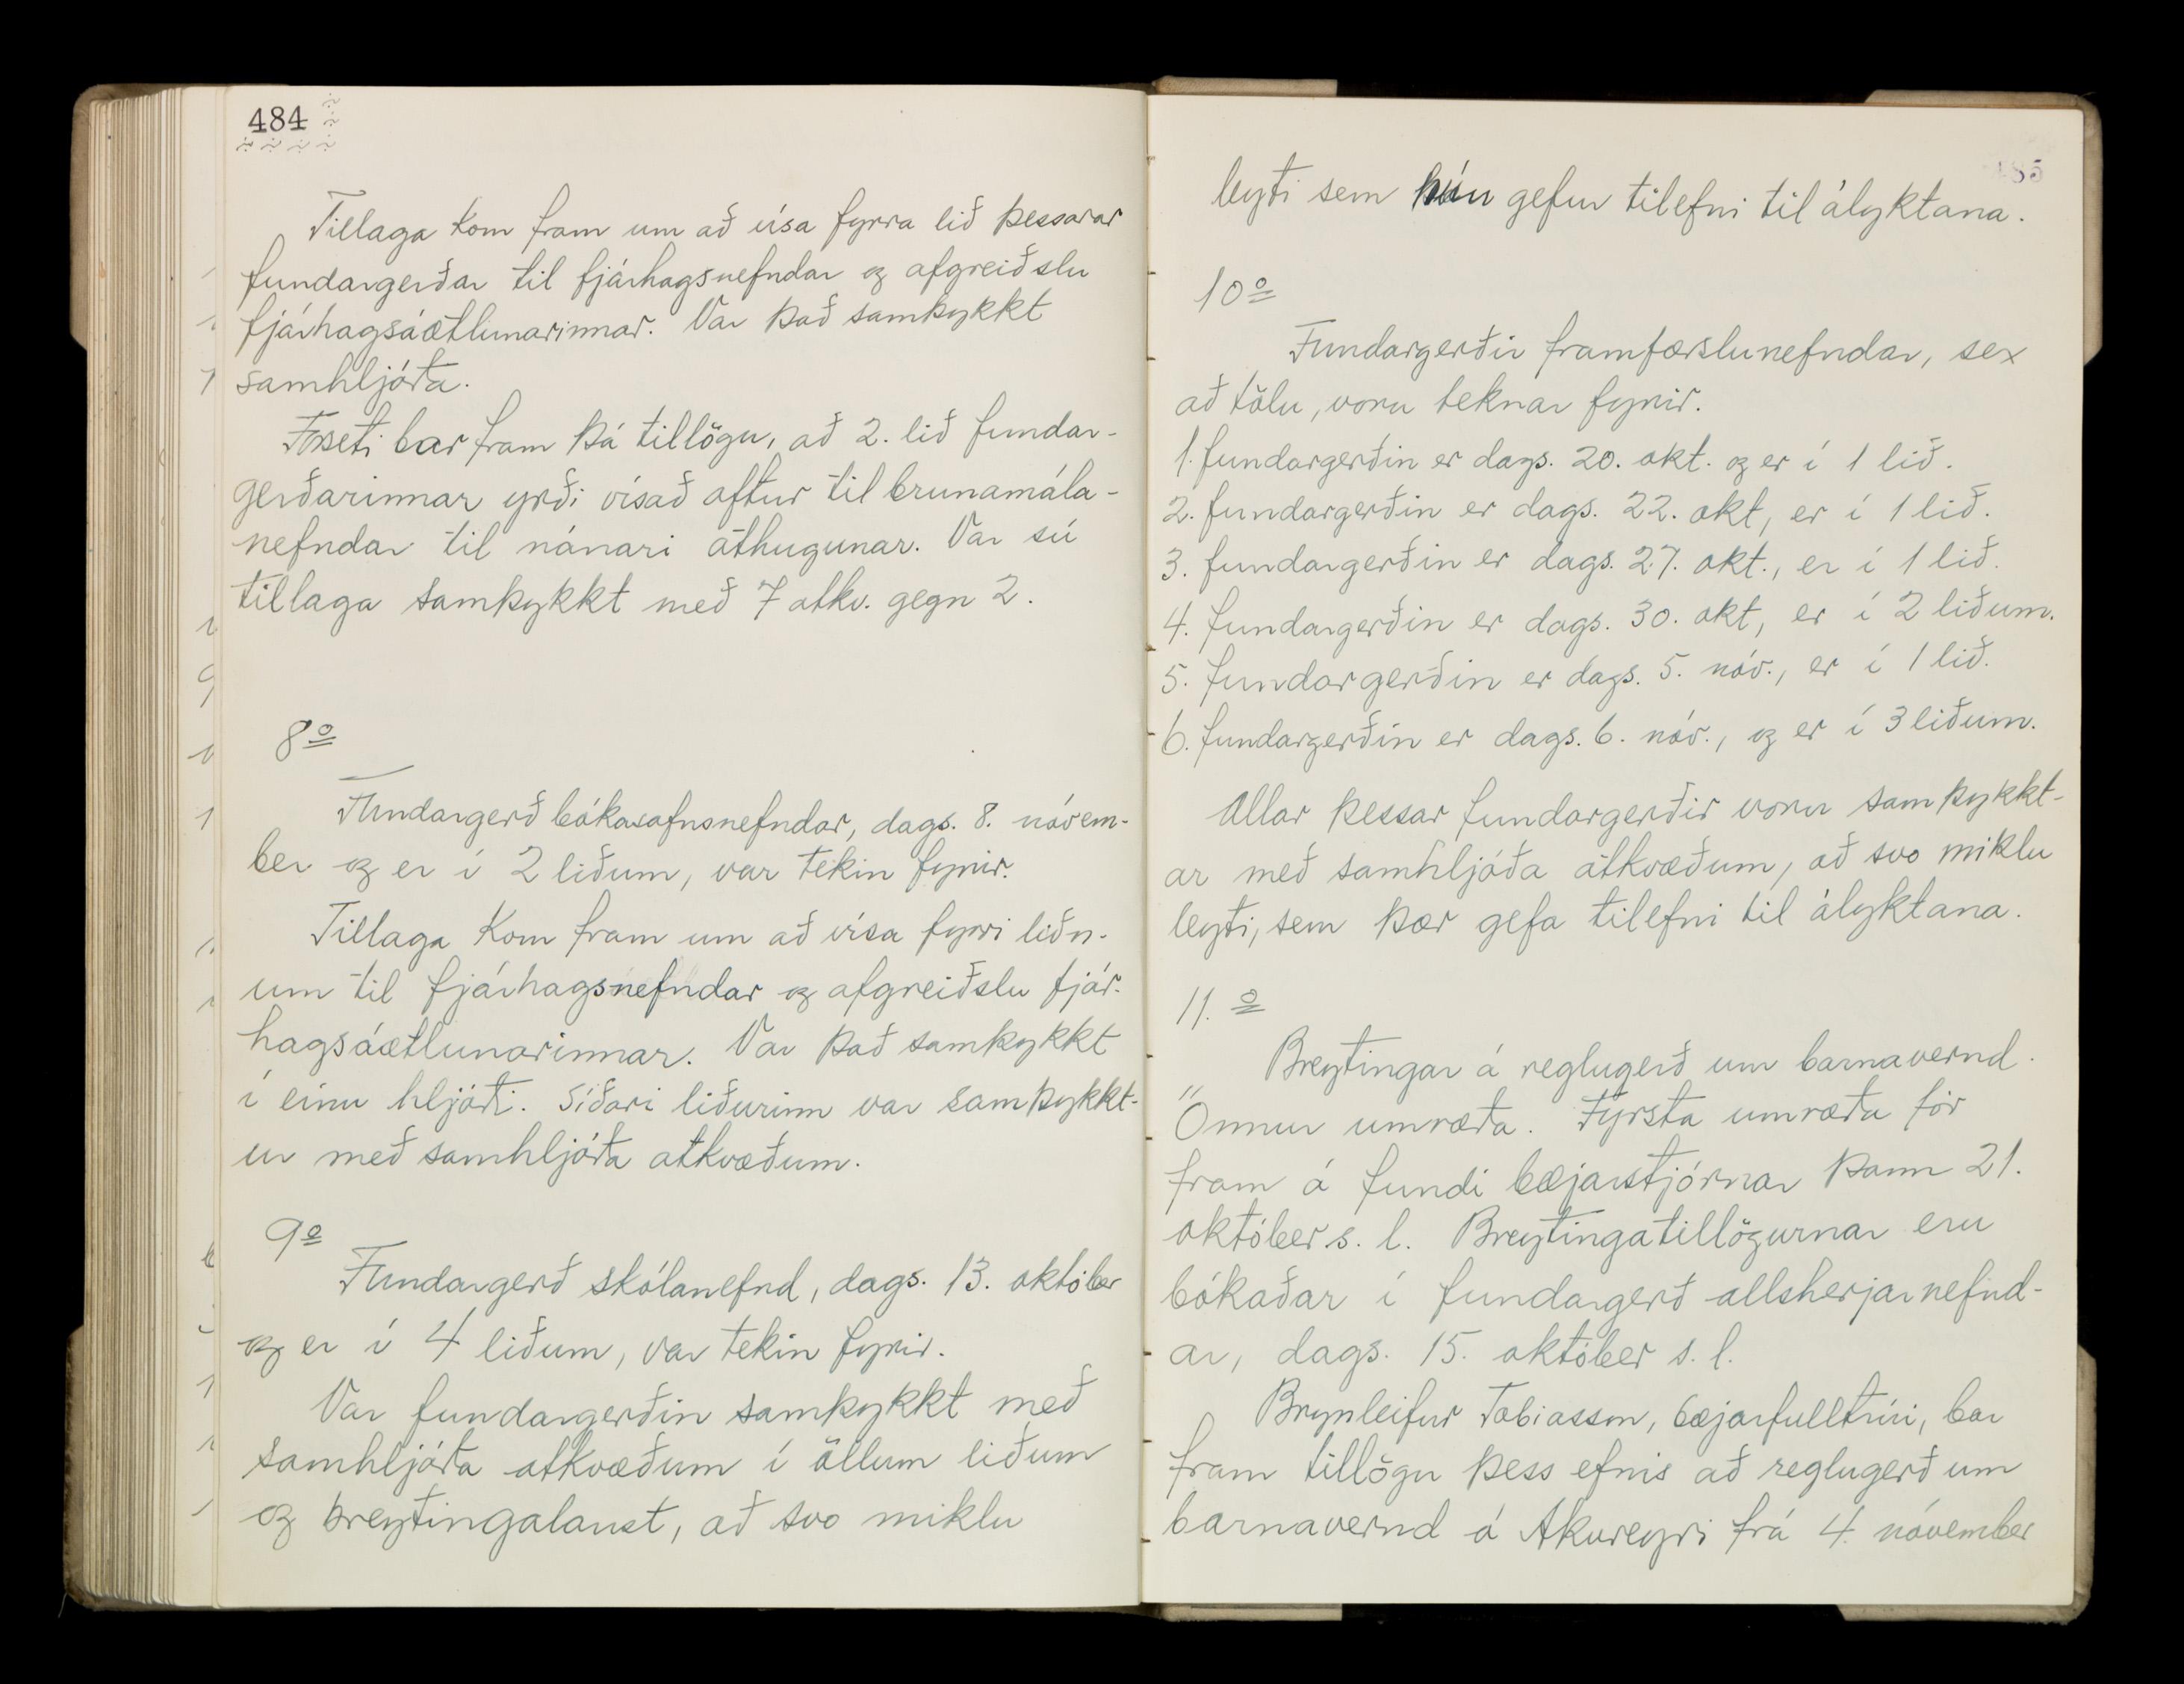 484
Tillaga kom fram um að vísa fyrra lið þessarar
fundargerðar til fjárhagsnefndar og afgreiðslu
fjárhagsáætlunarinnar. Var það samþykkt
samhljóða.
Forseti bar fram þá tillögu, að 2. lið fundar-
gerðarinnar yrði vísað aftur til brunamála-
nefndar til nánari athugunar. Var sú
tillaga samþykkt með 7 atkv. gegn 2.
8º
Fundargerð bókasafnsnefndar, dags. 8. nóvem-
ber og er í 2 liðum, var tekin fyrir.
Tillaga kom fram um að vísa fyrri liðn-
um til fjárhagsnefndar og afgreiðslu fjár-
hagsáætlunarinnar. Var það samþykkt
í einu hljóði. Síðari liðurinn var samþykkt-
ur með samhljóða atkvæðum.
9º
Fundargerð skólanefnd, dags. 13. október
og er í 4 liðum, var tekin fyrir.
Var fundargerðin samþykkt með
samhljóða atkvæðum í öllum liðum
og breytingalaust, að svo miklu
485
leyti sem hún gefur tilefni til ályktana.
10º
Fundargerðir framfærslunefndar, sex
að tölu, voru teknar fyrir.
1. fundargerðin er dags. 20. okt. og er í 1 lið.
2. fundargerðin er dags. 22. okt, er í 1 lið.
3. fundargerðin er dags. 27. okt., er í 1 lið.
4. fundargerðin er dags. 30. okt, er í 2 liðum.
5. fundargerðin er dags. 5. nóv., er í 1 lið.
6. fundargerðin er dags. 6. nóv., og er í 3 liðum.
Allar þessar fundargerðir voru samþykkt-
ar með samhljóða atkvæðum, að svo miklu
leyti, sem þær gefa tilefni til ályktana.
11. º
Breytingar á reglugerð um barnavernd.
Önnur umræða. Fyrsta umræða fór
fram á fundi bæjarstjórnar þann 21.
október s. l. Breytingatillögurnar eru
bókaðar í fundargerð allsherjarnefnd-
ar, dags. 15. október s. l.
Brynleifur Tobiasson, bæjarfulltrúi, bar
fram tillögu þess efnis að reglugerð um
barnavernd á Akureyri frá 4. nóvember